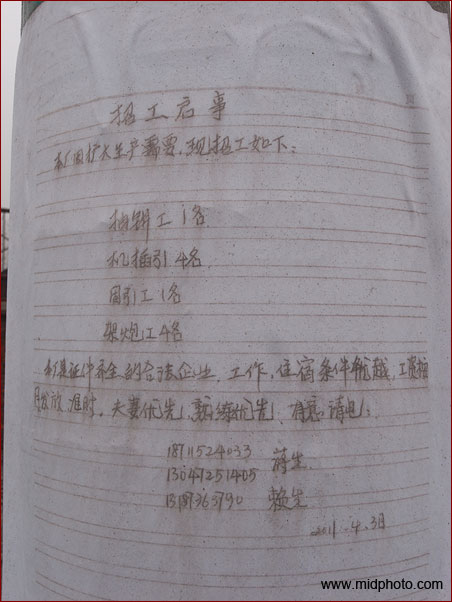 招工启事
本厂因扩大生产需要,现招工如下:
插饼工1名
机插引4名
固引工1名
架炮工4名
本厂是证件齐全的合法企业,工作,住宿条件优越,工资按
月发放准时。夫妻优先,熟练优先、有意请电:
18711524033 蒋生
13047251405
赖生
2011.4.3日
www.midphoto.com